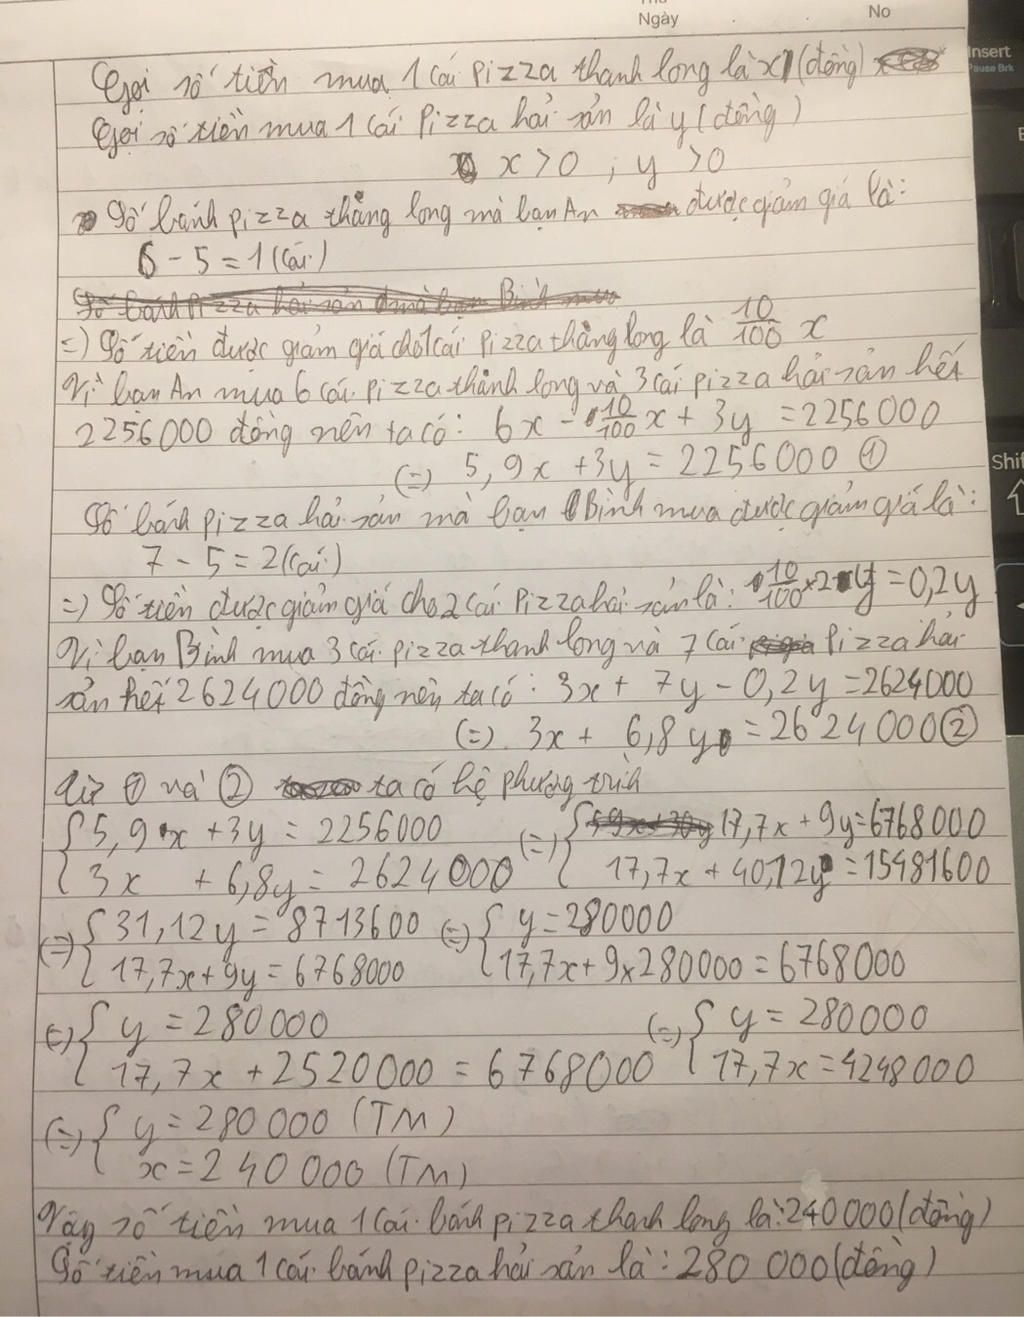 Ngày
No
Insert
Pause Brk
Shif
Gọi số tiền mua 1 cái pizza thanh long là x (đồng)
Gọi số tiền mua 1 cái pizza hải sản là y (đồng)
x > 0 ; y > 0
Số bánh pizza thăng long mà bạn An được giảm giá là:
6 - 5 = 1 (cái)
=) Số tiền được giảm giá cho 1 cái pizza thăng long là 10/100 x
Vì bạn An mua 6 cái pizza thănh long và 3 cái pizza hải sản hết
2256000 đồng nên ta có: 6x - 10/100 x + 3y = 2256000
(=) 5,9x + 3y = 2256000 ①
Số bánh pizza hải sản mà bạn Bình mua được giảm giá là:
7 - 5 = 2 (cái)
=) Số tiền được giảm giá cho 2 cái pizza hải sản là: 10/100 × 2 y = 0,2y
Vì bạn Bình mua 3 cái pizza thanh long và 7 cái pizza hải
sản hết 2624000 đồng nên ta có: 3x + 7y - 0,2y = 2624000
(=) 3x + 6,8y = 2624000 ②
Từ ① và ② ta có hệ phương trình
{ 5,9x + 3y = 2256000 (=) { 17,7x + 9y = 6768000
{ 3x + 6,8y = 2624000 { 17,7x + 40,12y = 15481600
(=) { 31,12y = 8713600 (=) { y = 280000
{ 17,7x + 9y = 6768000 { 17,7x + 9 × 280000 = 6768000
(=) { y = 280000 (=) { y = 280000
{ 17,7x + 2520000 = 6768000 { 17,7x = 4248000
(=) { y = 280000 (TM)
{ x = 240000 (TM)
Vậy số tiền mua 1 cái bánh pizza thanh long là: 240000 (đồng)
Số tiền mua 1 cái bánh pizza hải sản là: 280 000 (đồng)